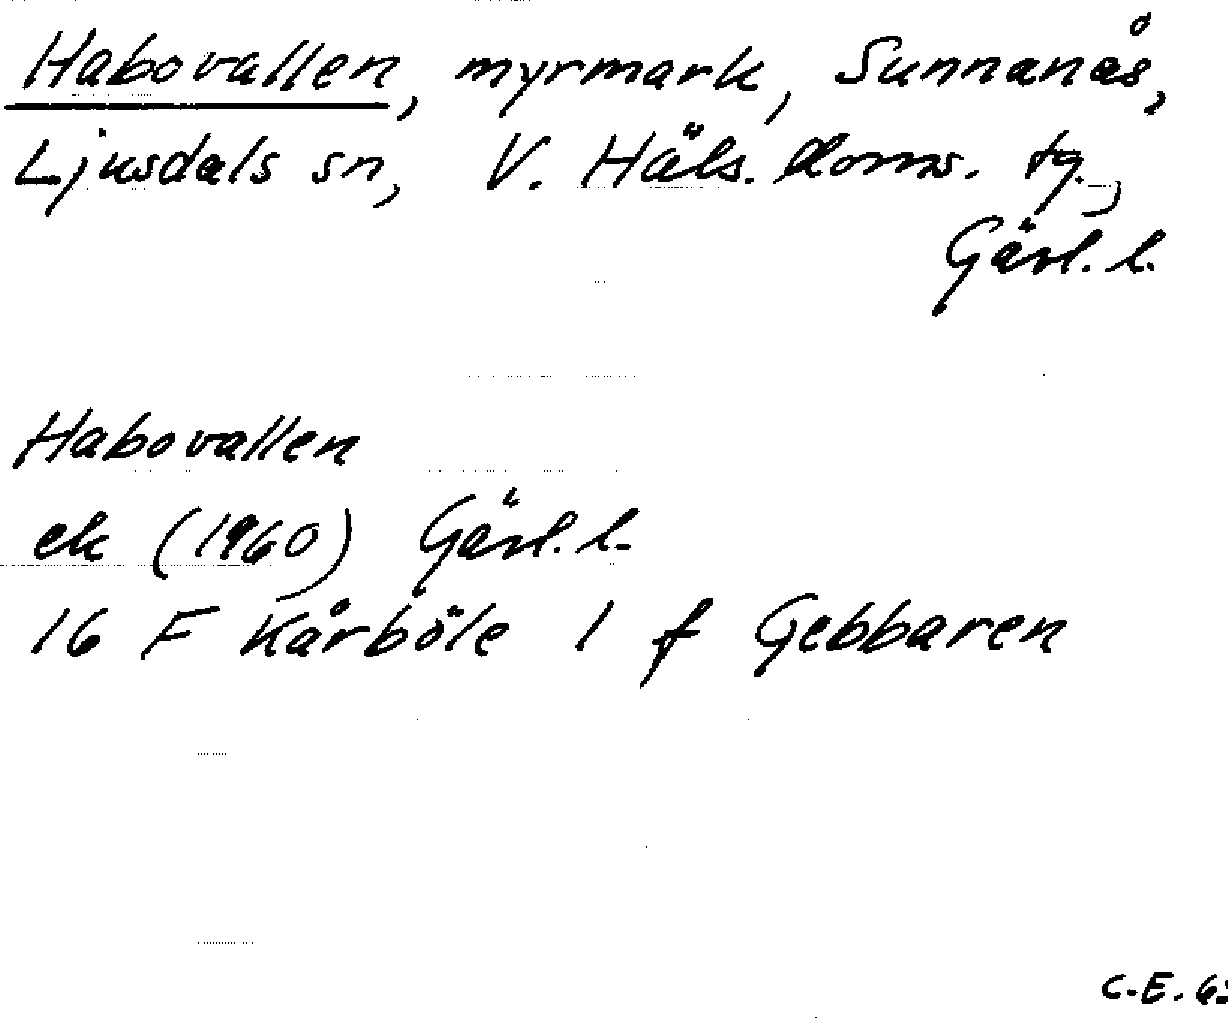 Habovallen, myrmark, Sunnanås,
Ljusdals sn, V. Häls. doms. tg.,
Gävl. l.
Habovallen
ek (1960) Gävl. l.
16 F Kårböle 1 f Gebbaren
C.-E.